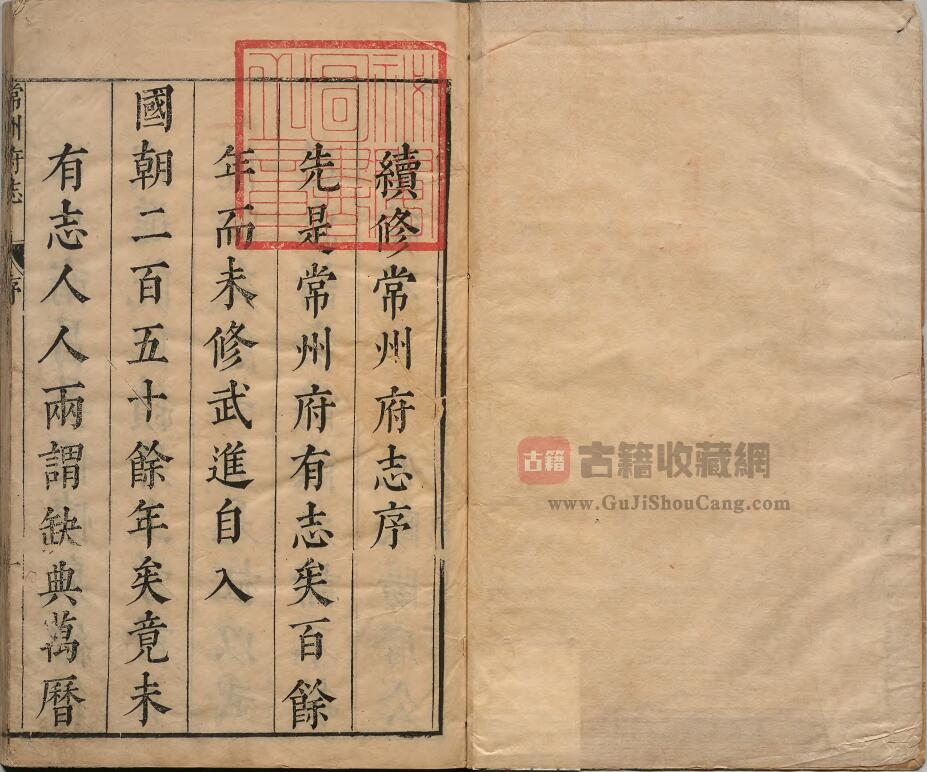 續修常州府志序
先是常州府有志矣百餘
年而未修武進自入
國朝二百五十餘年矣竟未
有志人人兩謂缺典萬曆
常州府志
序
一
古籍
古籍收藏網
www.GuJiShouCang.com